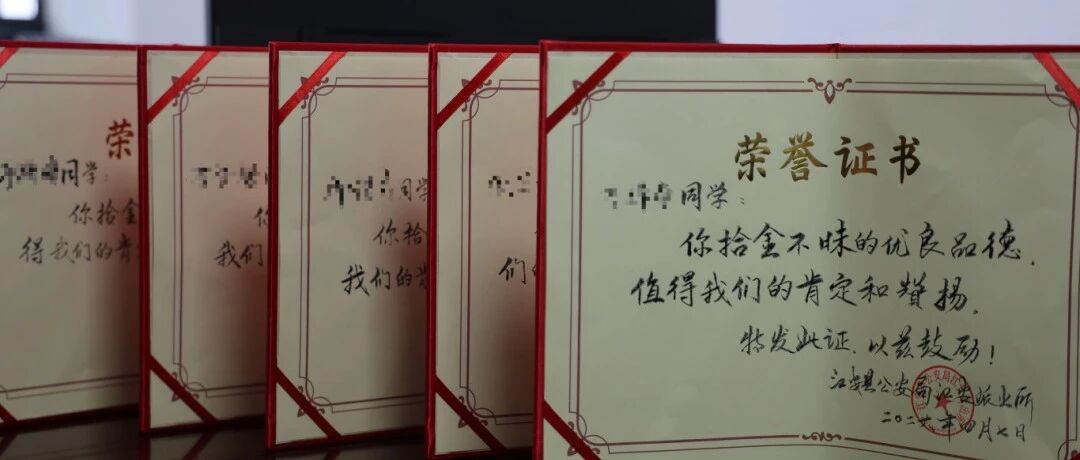 荣
同学：
你拾金
得我们的肯
我们
同学
你拾
我们的
们的
荣誉证书
同学：
你拾金不昧的优良品德，
值得我们的肯定和赞扬。
特发此证，以兹鼓励！
江安县公安局江安派出所
二〇二 年四月七日